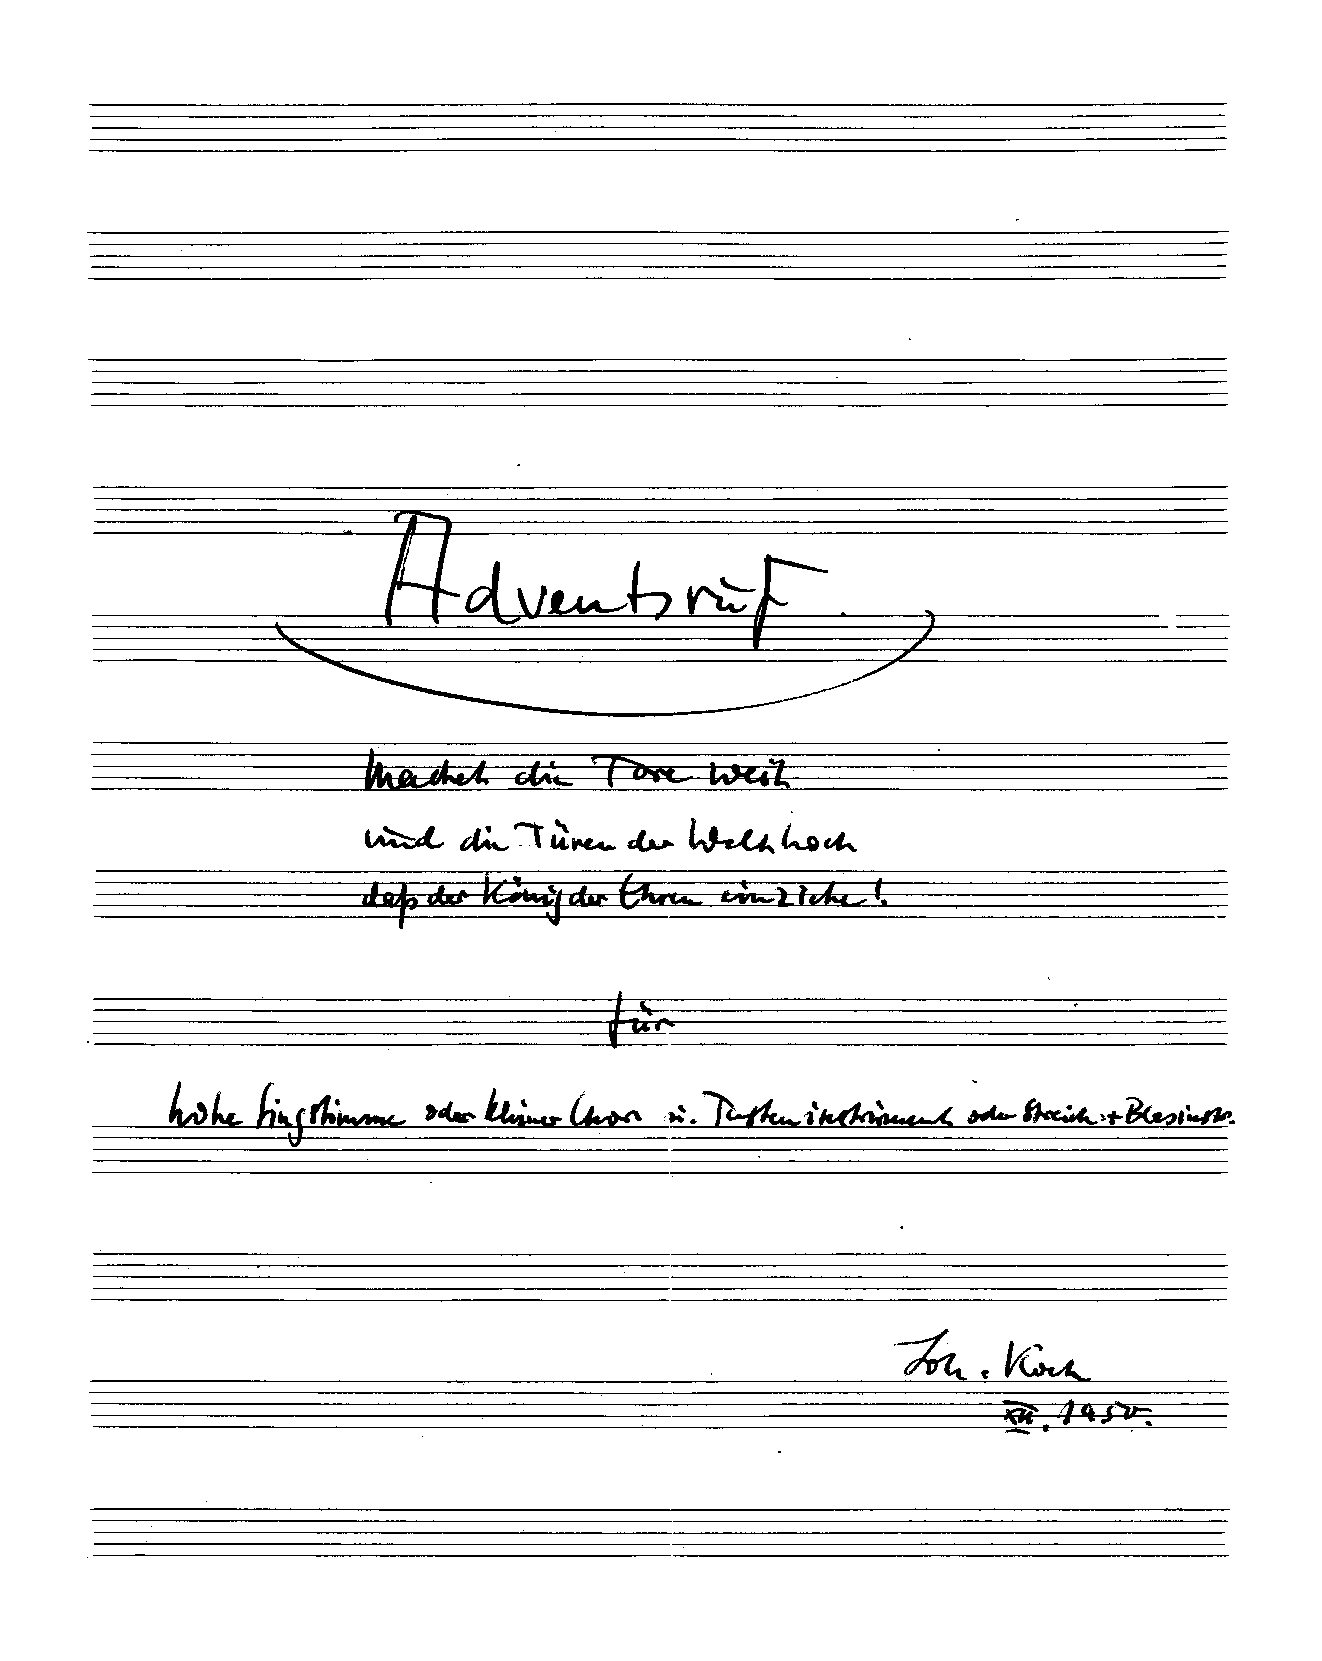 Adventsruf.
Machet die Tore weit
und die Türen der Welt hoch
daß der König der Ehren einziehe!
für
hohe Singstimme oder kleiner Chor u. Tasteninstrument oder Streich- + Blasinstr.
Joh. Koch
XII. 1950.